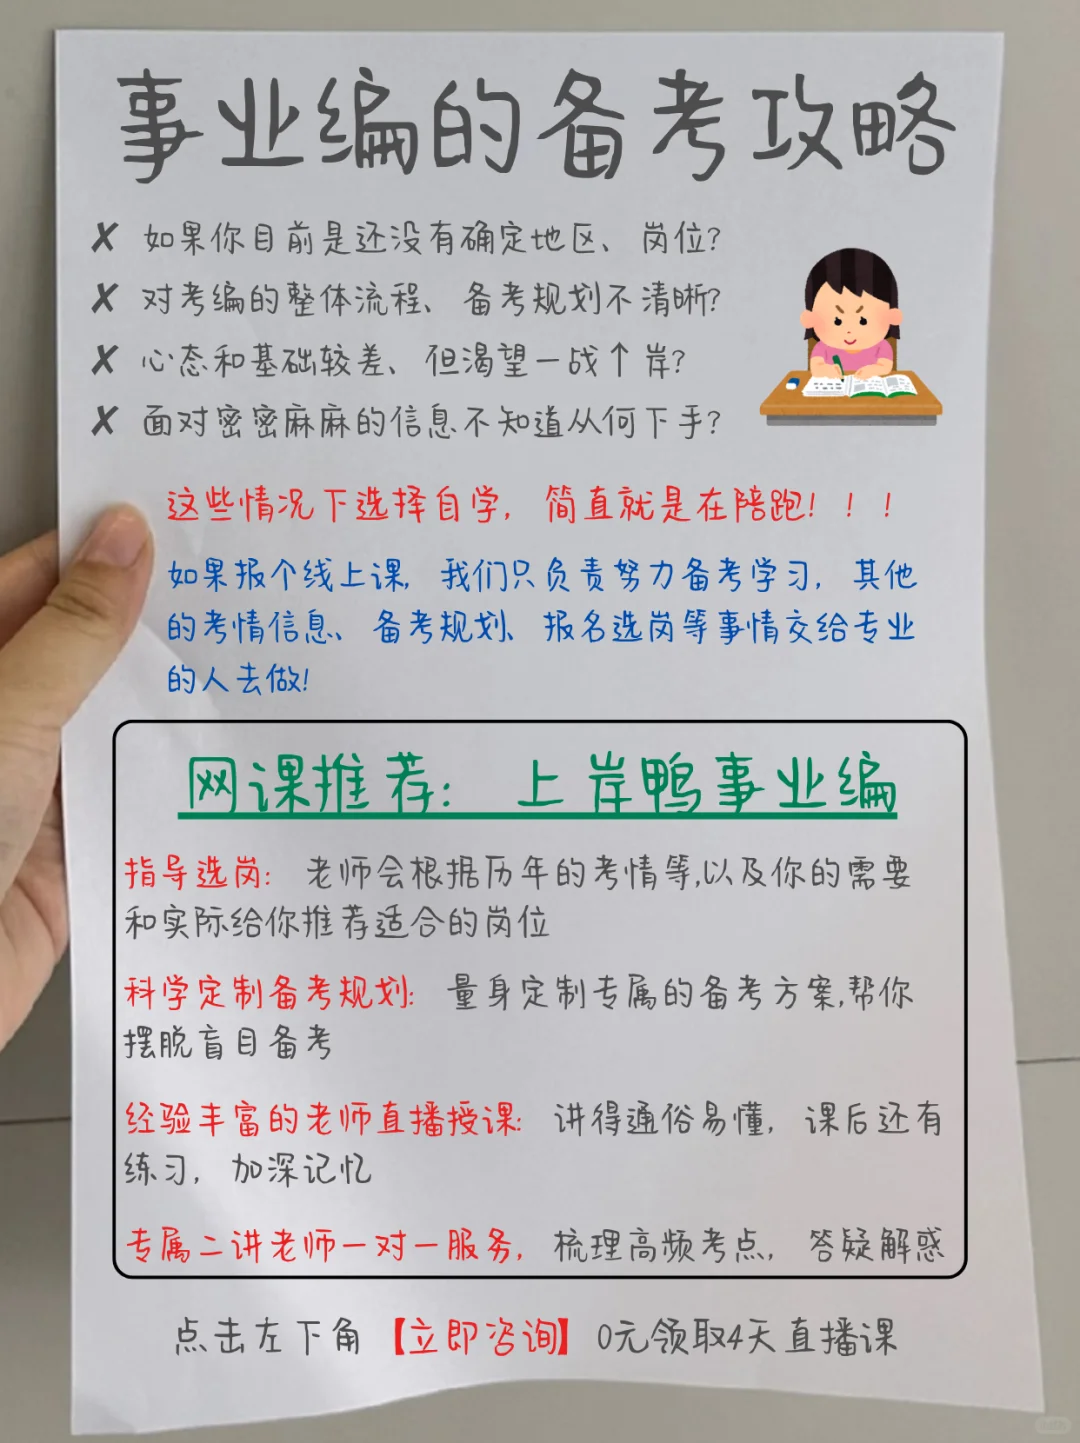 事业编的备考攻略
✘ 如果你目前是还没有确定地区、岗位?
✘ 对考编的整体流程、备考规划不清晰?
✘ 心态和基础较差、但渴望一战个岸?
✘ 面对密密麻麻的信息不知道从何下手?
这些情况下选择自学, 简直就是在陪跑! ! !
如果报个线上课, 我们只负责努力备考学习, 其他
的考情信息、备考规划、报名选岗等事情交给专业
的人去做!
网课推荐: 上岸鸭事业编
指导选岗: 老师会根据历年的考情等,以及你的需要
和实际给你推荐适合的岗位
科学定制备考规划: 量身定制专属的备考方案,帮你
摆脱盲目备考
经验丰富的老师直播授课: 讲得通俗易懂, 课后还有
练习, 加深记忆
专属二讲老师一对一服务, 梳理高频考点, 答疑解惑
点击左下角【立即咨询】0元领取4天直播课